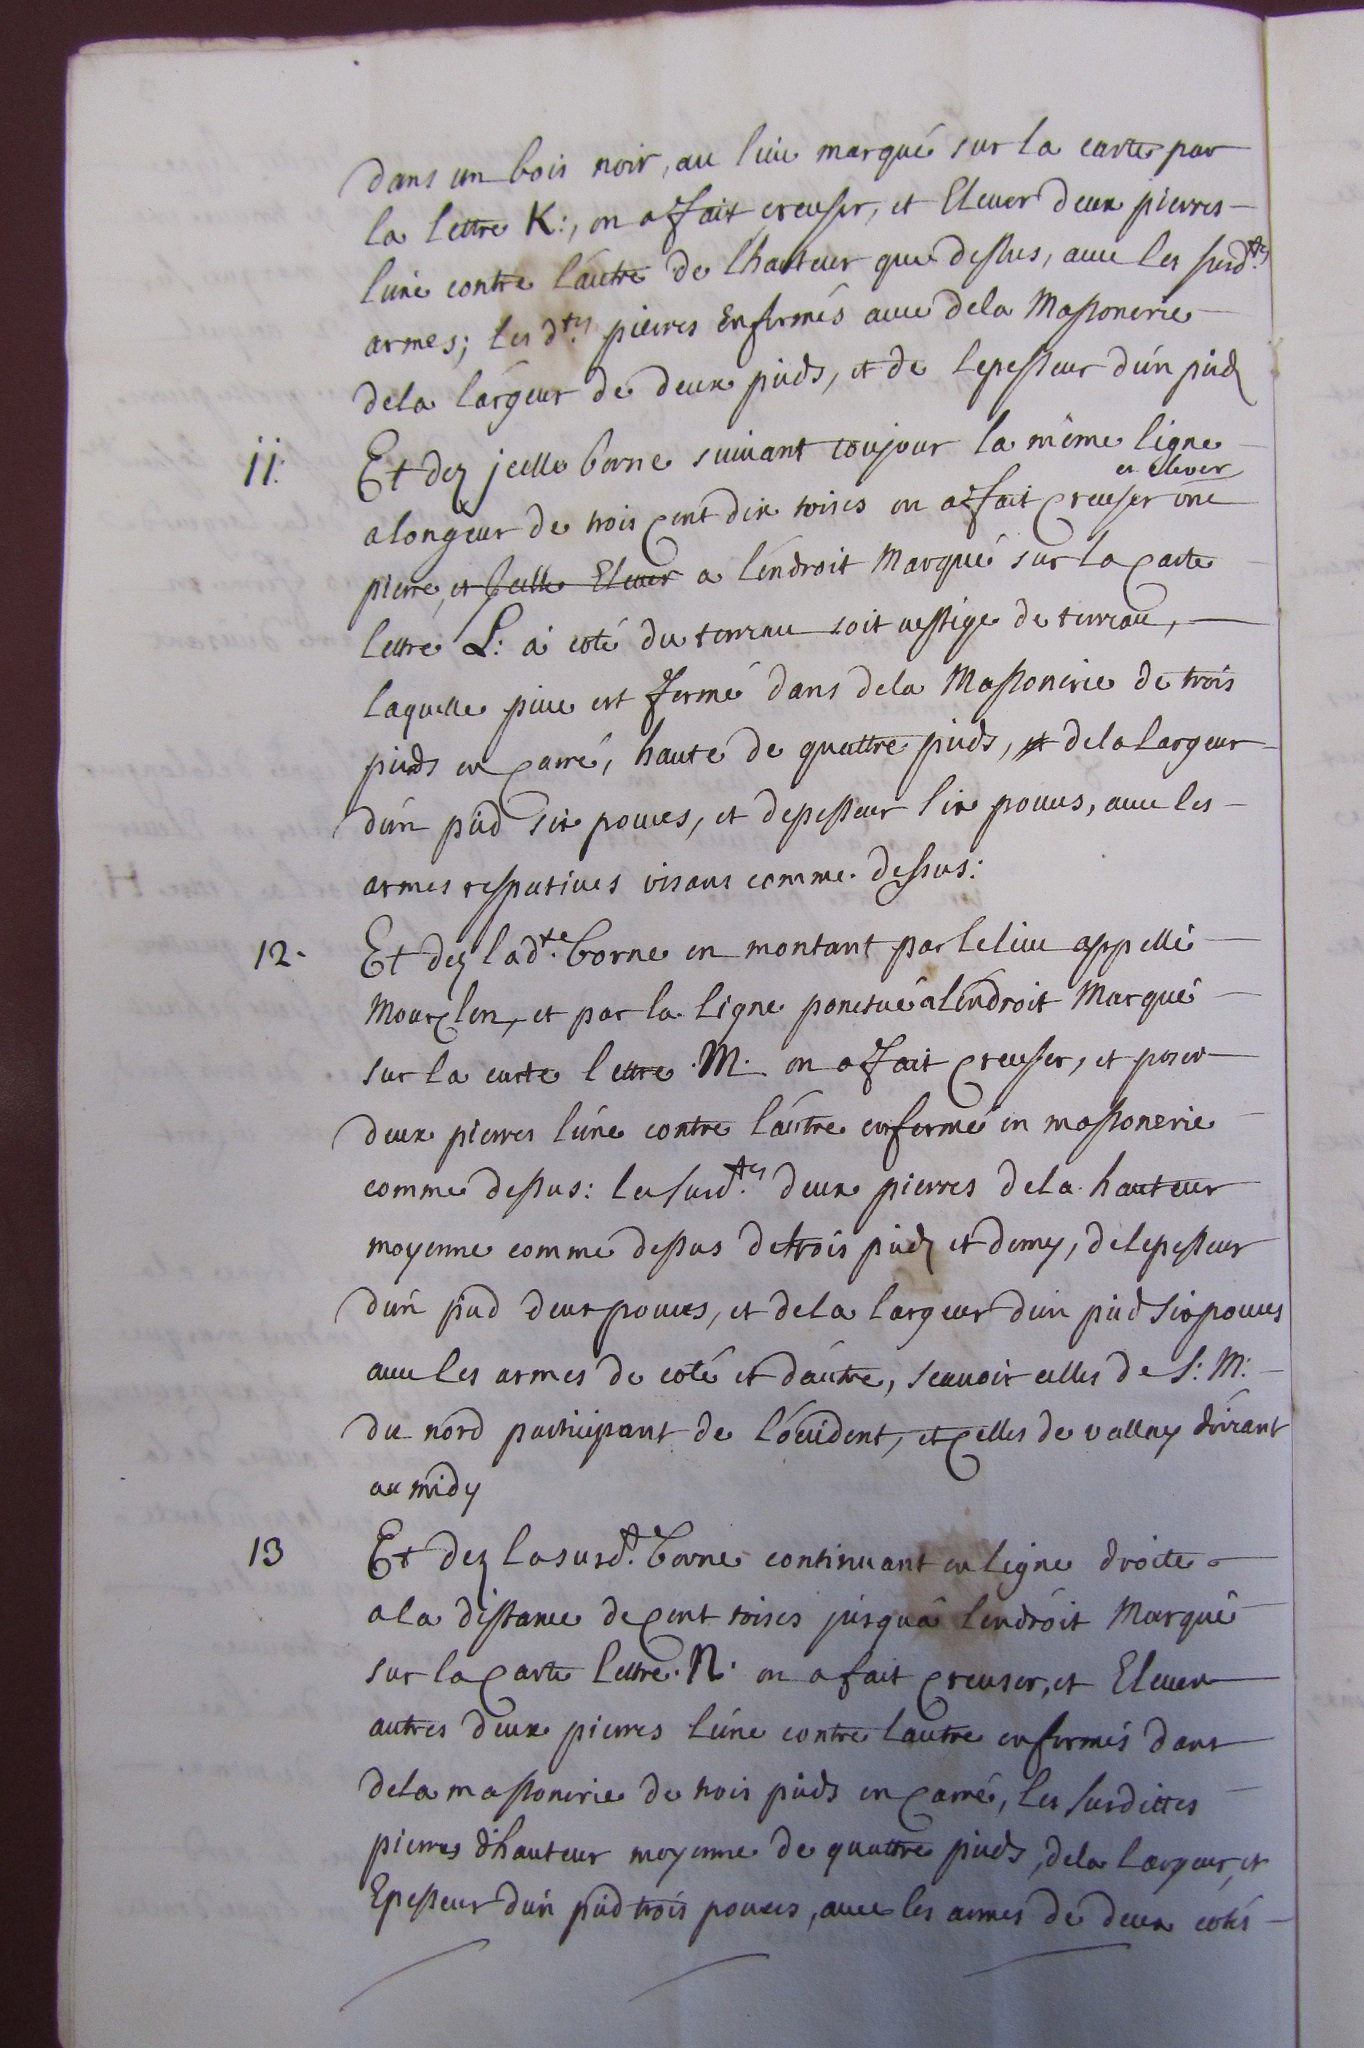 dans un bois noir, au lieu marqué sur la carte par
la lettre K:, on a fait creuser, et Elever deux pierres
lune contre lautre de lhauteur que dessus, avec les surd.tes
armes; les d.tes pierres Enfermés avec dela Massonerie
dela largeur de deux pieds, et de lepesseur dun pied
11: Et dez jcelle borne suivant toujour la même ligne
et elever
a longeur de trois cent dix toises on a fait creuser une
pierre, et jcelle Elever a lendroit Marqué sur la carte
lettre L: a coté du terreau soit vestige de terreau,
laquelle piece est fermé dans dela Massonerie de trois
pieds en carré, haute de quattre pieds, et dela largeur
dun pied six pouces, et depesseur six pouces, avec les
armes respectives visans comme dessus:
12. Et dez lad.te borne en montant par le lieu appellé
et par la ligne ponctué a lendroit Marqué
sur la carte lettre M. on a fait creuser, et poser
deux pierres lune contre lautre enfermé en massonerie
comme dessus: les surd.tes deux pierres dela hauteur
moyenne comme dessus de trois pieds et demy, de lepesseur
dun pied deux pouces, et dela largeur dun pied six pouces
avec les armes de coté et dautre, scavoir celles de S: M:
du nord participant de loccident, et celles de valley
au midy
13 Et dez la surd.te borne continuant en ligne droite
a la distance de cent toises jusqua lendroit Marqué
sur la carte lettre N. on a fait creuser, et Elever
autres deux pierres lune contre lautre enfermés dans
dela massonerie de trois pieds en carré, les surdittes
pierres dhauteur moyenne de quattre pieds, dela largeur, et
Epesseur dun pied trois pouces, avec les armes de deux cotés